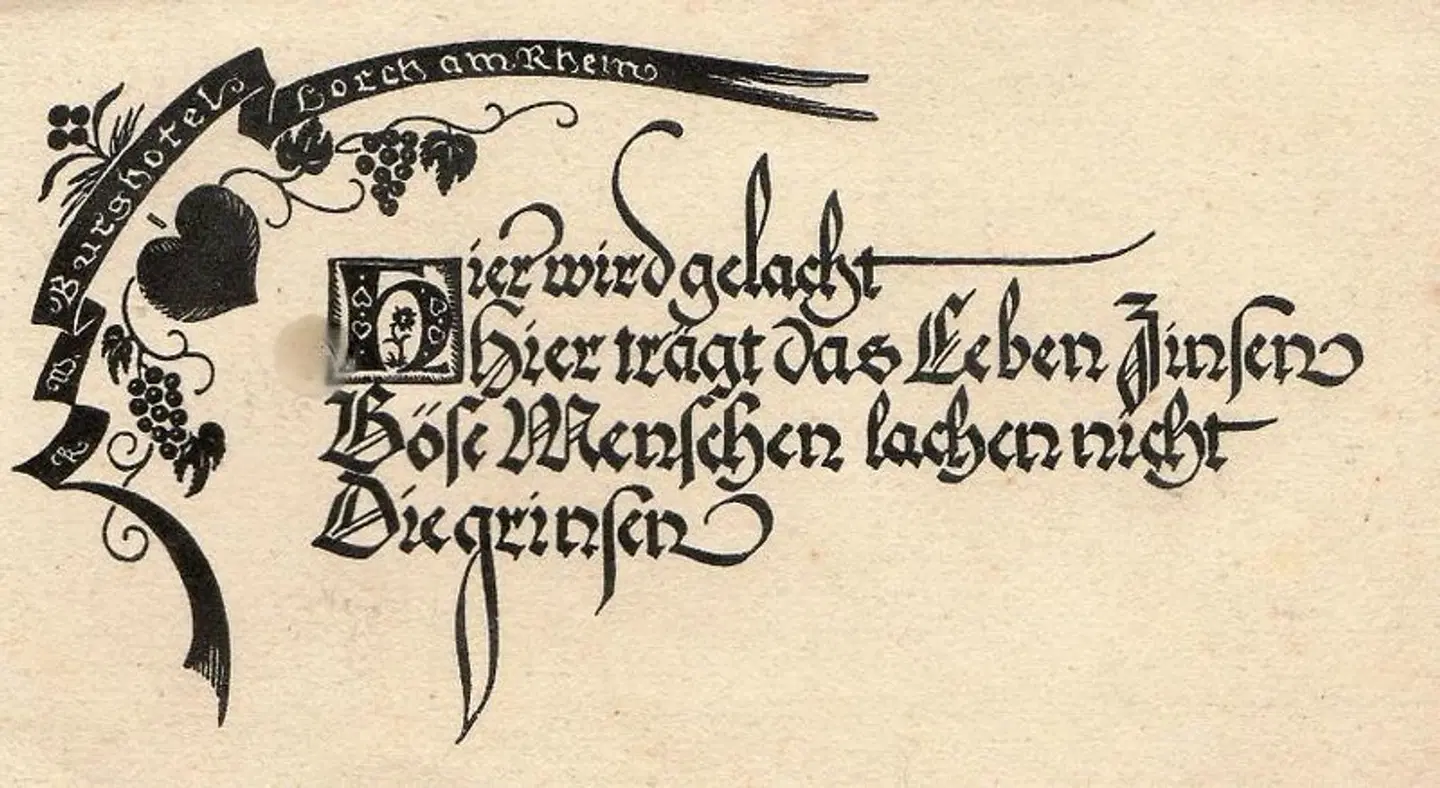 Burghotel Lorch am Rhein
W.
K
Hier wird gelacht
Hier trägt das Leben Zinsen
Böse Menschen lachen nicht
Die grinsen